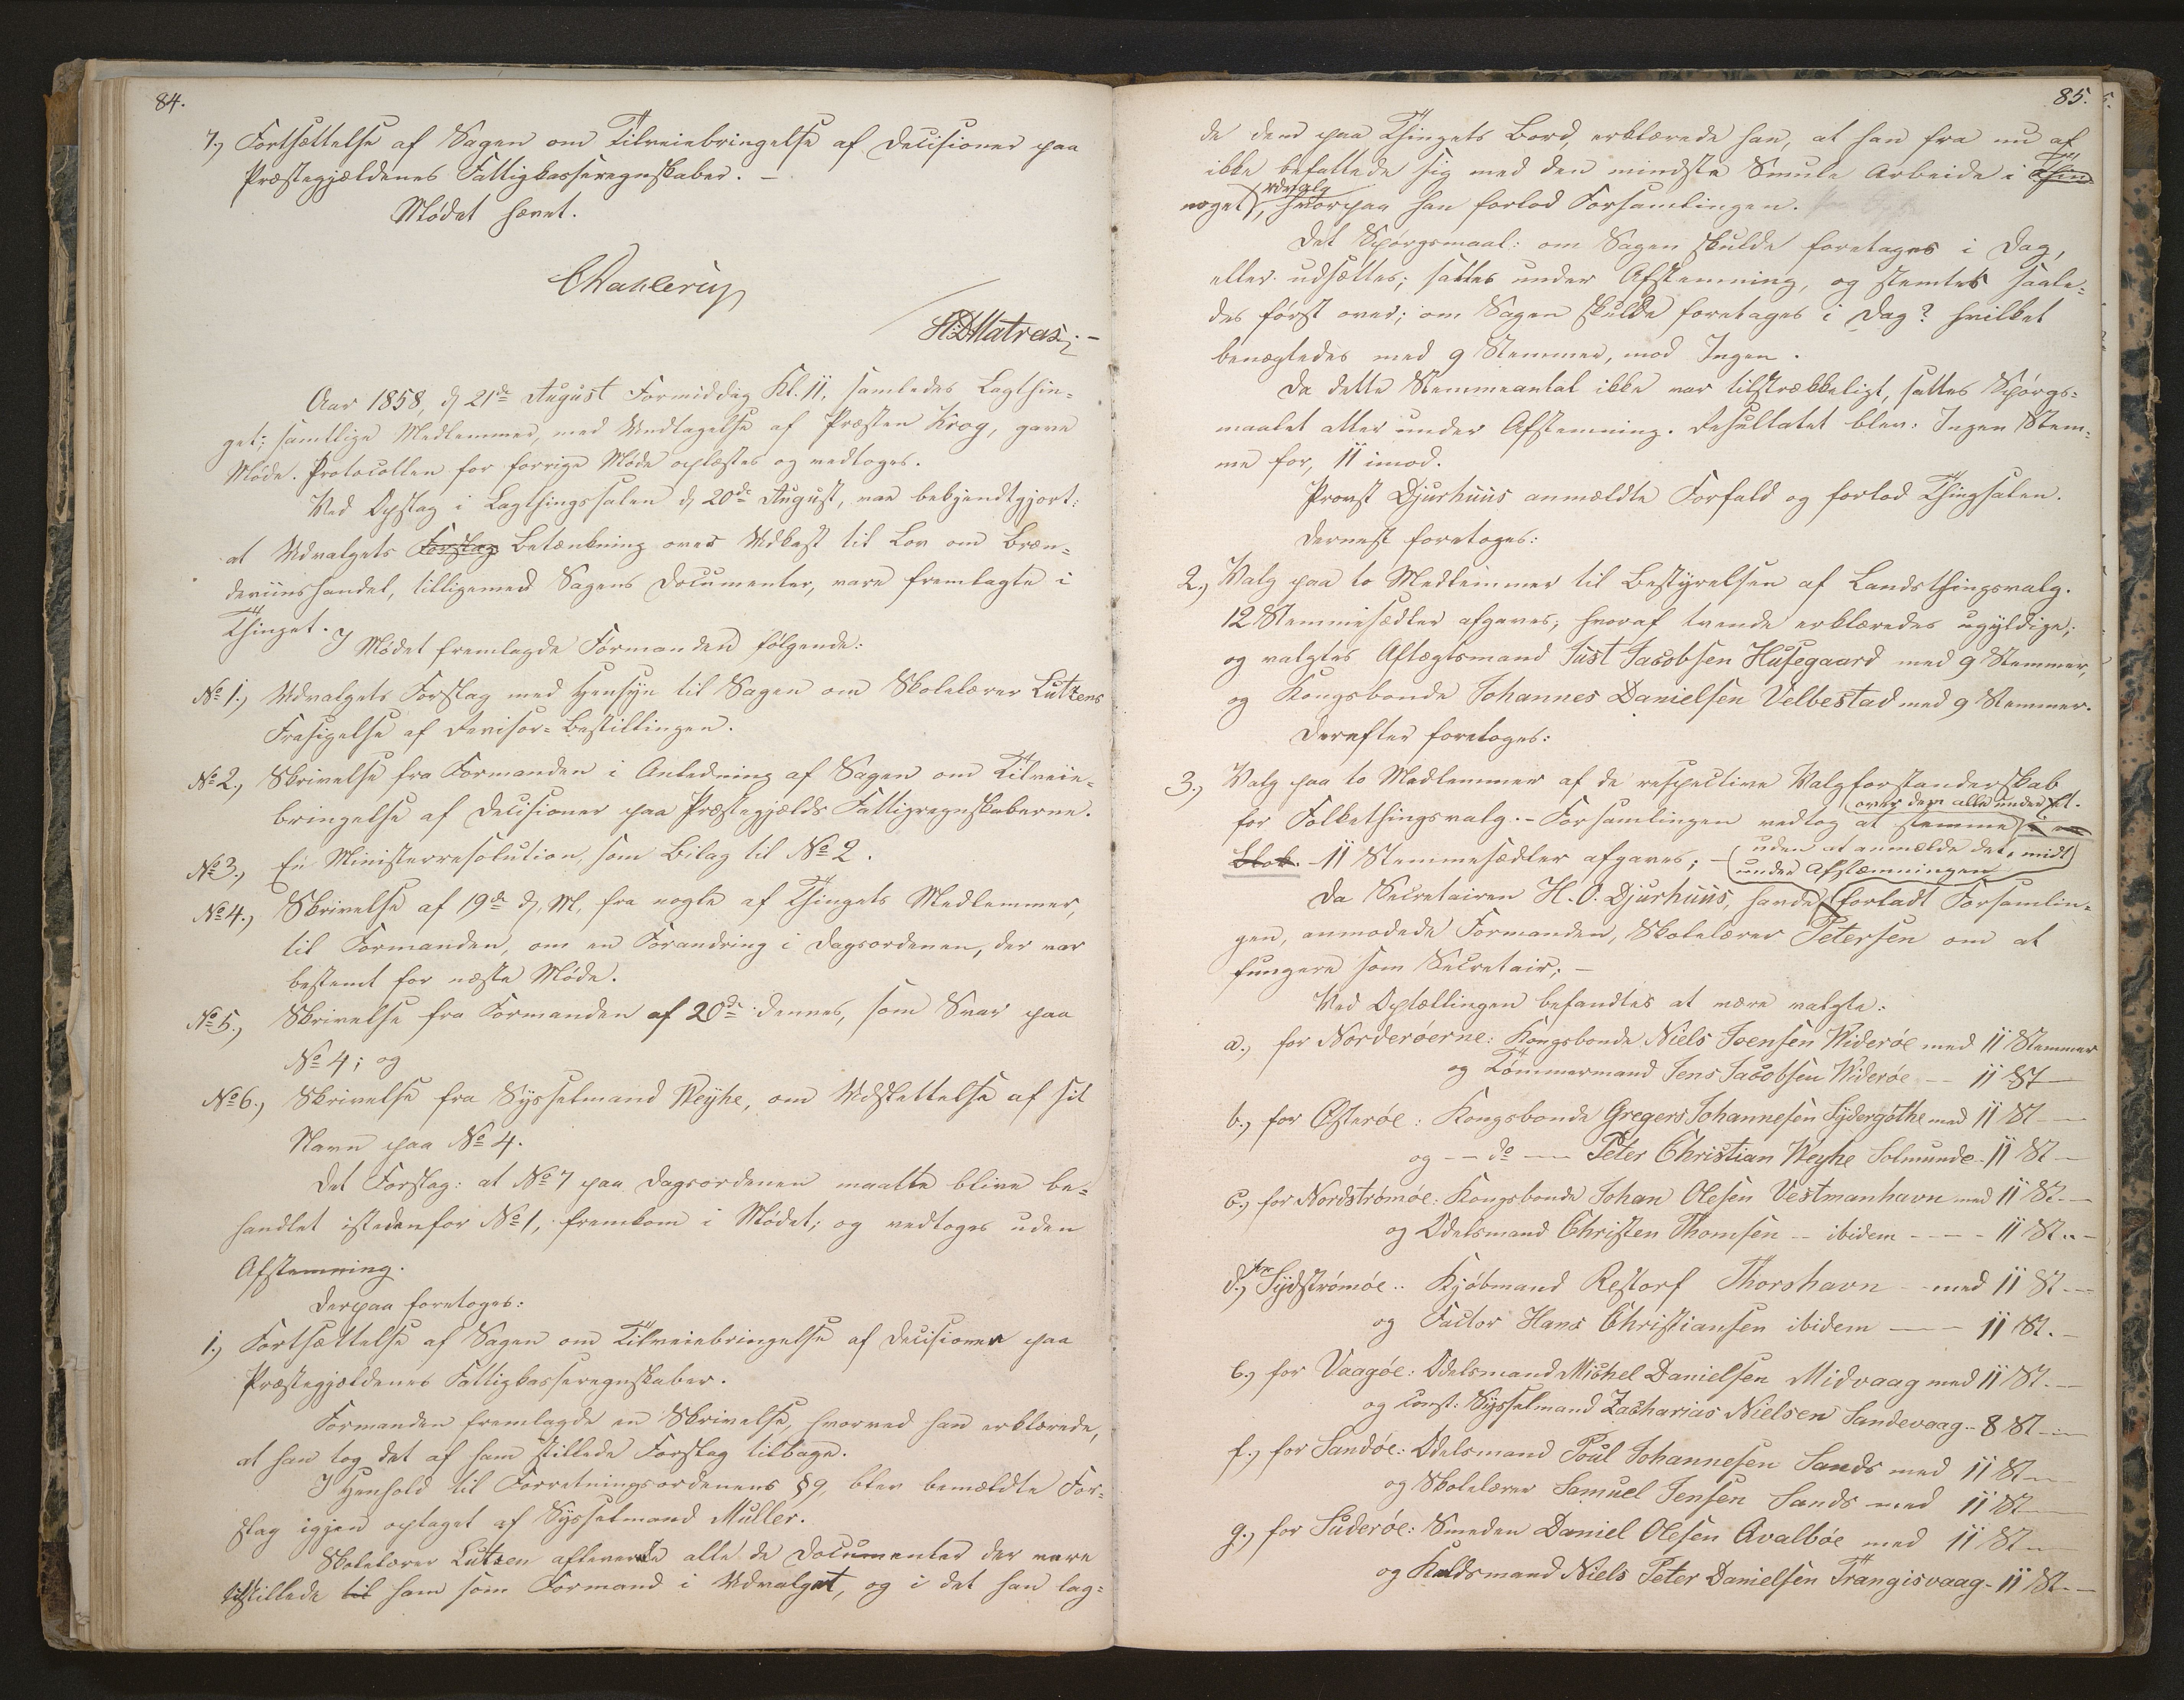 84.
7.) Fortsættelse af Sagen om Tilveiebringelse af Decisioner paa
Præstegjældenes Fattigkasseregnskaber. –
Mødet hævet.
CDahlerup
H:DMatras. –
Aar 1858, d. 21de August Formiddag Kl. 11, samledes Lagthin=
get; samtlige Medlemmer, med Undtagelse af Præsten Krog, gave
Møde. Protocollen for forrige Møde oplæstes og vedtoges.
Ved Opslag i Lagthingssalen d. 20de August, var bekjendtgjort:
at Udvalgets Forslag Betænkning over Udkast til Lov om Bræn=
deviinshandel, tilligemed Sagens Documenter, vare fremlagte i
Thinget.
I Mødet fremlagde Formanden følgende:
No 1.) Udvalgets Forslag med Hensyn til Sagen om Skolelærer Lützens
Frasigelse af Revisor=Bestillingen.
No 2.) Skrivelse fra Formanden i Anledning af Sagen om Tilveie=
bringelse af Decisioner paa Præstegjælds Fattigregnskaberne.
No 3.) En Ministerresolution, som Bilag til No 2.
No 4.) Skrivelse af 19de d. M. fra nogle af Thingets Medlemmer,
til Formanden, om en Forandring i Dagsordenen, der var
bestemt for næste Møde.
No 5.) Skrivelse fra Formanden af 20de dennes, som Svar paa
No 4; og
No 6.) Skrivelse fra Sysselmand Weyhe, om Udslettelse af sit
Navn paa No 4.
Det Forslag: at No 7 paa Dagsordenen maatte blive be=
handlet istedenfor No 1, fremkom i Mødet; og vedtoges uden
Afstemning.
Derpaa foretoges:
1.) Fortsættelse af Sagen om Tilveiebringelse af Decisioner paa
Præstegjældenes Fattigkasseregnskaber.
Formanden fremlagde en Skrivelse, hvorved han erklærede,
at han tog det af ham stillede Forslag tilbage.
I Henhold til Forretningsordenens §9, blev bemældte For=
slag igjen optaget af Sysselmand Müller.
Skolelærer Lützen afleverede alle de Documenter der vare
tilstillede til ham som Formand i Udvalget, og i det han lag=
85.
de dem paa Thingets Bord, erklærede han, at han fra nu af
ikke befattede sig med den mindste Smule Arbeide i Thin
noget Udvalg, hvorpaa han forlod Forsamlingen.
Det Spørgsmaal: om Sagen skulde foretages i Dag,
eller udsættes; sattes under Afstemning, og stemtes saale=
des først over; om Sagen skulde foretages i Dag? hvilket
benægtedes med 9 Stemmer, mod Ingen.
Da dette Stemmeantal ikke var tilstrækkeligt, sattes Spørgs=
maalet atter under Afstemning. Resultatet blev: Ingen Stem=
me for, 11 imod.
Provst Djurhuus anmældte Forfald og forlod Thingsalen.
Dernæst foretoges:
2.) Valg paa to Medlemmer til Bestyrelsen af Landsthingsvalg.
12 Stemmesedler afgaves; hvoraf tvende erklæredes ugyldige;
og valgtes Aftægtsmand Just Jacobsen Husegaard med 9 Stemmer,
og Kongsbonde Johannes Danielsen Velbestad med 9 Stemmer.
Derefter foretoges:
3.) Valg paa to Medlemmer af de respective Valgforstanderskab
for Folkethingsvalg. – Forsamlingen vedtog at stemme over dem alle under Et.
Blok. 11 Stemmesedler afgaves; –
Da Secretairen H. O. Djurhuus, havde uden at anmælde det, midt under Afstemningen forladt Forsamlin=
gen, anmodede Formanden, Skolelærer Petersen om at
fungere som Secretair; –
Ved Optællingen befandtes at være valgte:
a.) for Norderøerne: Kongsbonde Niels Joensen Widerøe med 11 Stemmer
og Tømmermand Jens Jacobsen Widerøe – – 11 St –
b.) for Østerøe: Kongsbonde Gregers Johannesen Sydergøthe med 11 St –
og – – do – – Peter Christian Weyhe Solmunde – 11 St –
c.) for Nordstrømøe: Kongsbonde Johan Olesen Vestmanhavn med 11 St. –
og Odelsmand Christen Thomsen – – ibidem – – – – 11 St. –
d.) for Sydstrømøe: Kjøbmand Restorf Thorshavn – – med 11 St – –
og Factor Hans Christiansen ibidem – – – 11 St. –
e.) for Vaagøe: Odelsmand Michel Danielsen Midvaag med 11 St. –
og const: Sysselmand Zacharias Nielsen Sandevaag – 8 St –
f.) for Sandøe: Odelsmand Poul Johannesen Sands med 11 St –
og Skolelærer Samuel Jensen Sands med 11 St –
g.) for Suderøe: Smeden Daniel Olesen Qvalbøe med 11 St –
og Huldsmand Niels Peter Danielsen Trangisvaag – 11 St. –